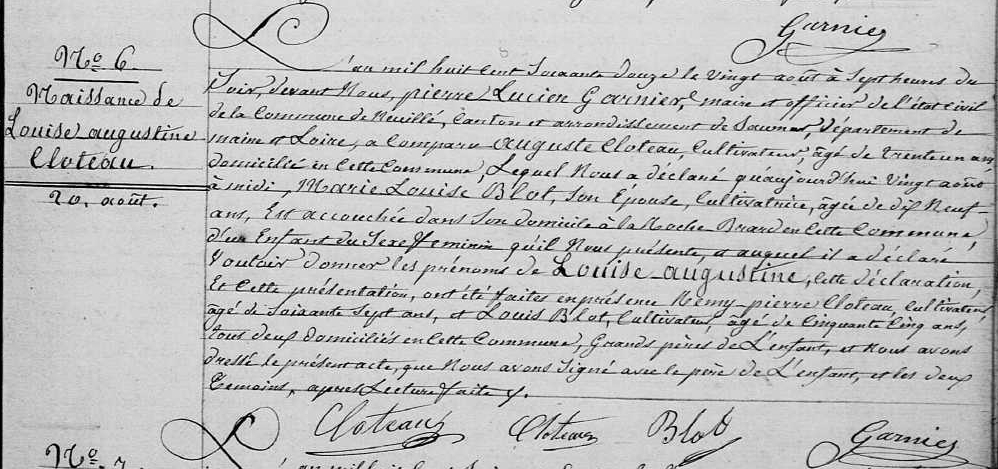 Garnier
No 6.
Naissance de
Louise augustine
Cloteau.
20. août.
L'an mil huit cent Soixante douze le Vingt août à Sept heures du
Soir, devant Nous, pierre Lucien Garnier, maire et officier de l'état civil
de la Commune de Neuillé, Canton et arrondissement de Saumur, Département de
maine et Loire, a Comparu auguste Cloteau, Cultivateur, âgé de Trente un ans
domicilié en Cette Commune, Lequel Nous a déclaré qu'aujourd'hui Vingt août
à midi, Marie Louise Blot, Son Épouse, Cultivatrice, âgée de dix Neuf
ans, Est accouchée dans Son domicile à la Roche Brard en Cette Commune,
d'un Enfant du Sexe féminin qu'il Nous présente, et auquel il a déclaré
Vouloir donner les prénoms de Louise augustine, Cette déclaration,
Et Cette présentation, ont été faites en présence Remy pierre Cloteau, Cultivateur,
âgé de Soixante Sept ans, et Louis Blot, Cultivateur, âgé de Cinquante Cinq ans,
tous deux domiciliés en Cette Commune, Grands pères de L'enfant, et Nous avons
dressé le présent acte, que Nous avons Signé avec le père de L'enfant, et les deux
Temoins, après Lecture faite.
Cloteau Cloteau Blot Garnier
No 7
L'an mil huit